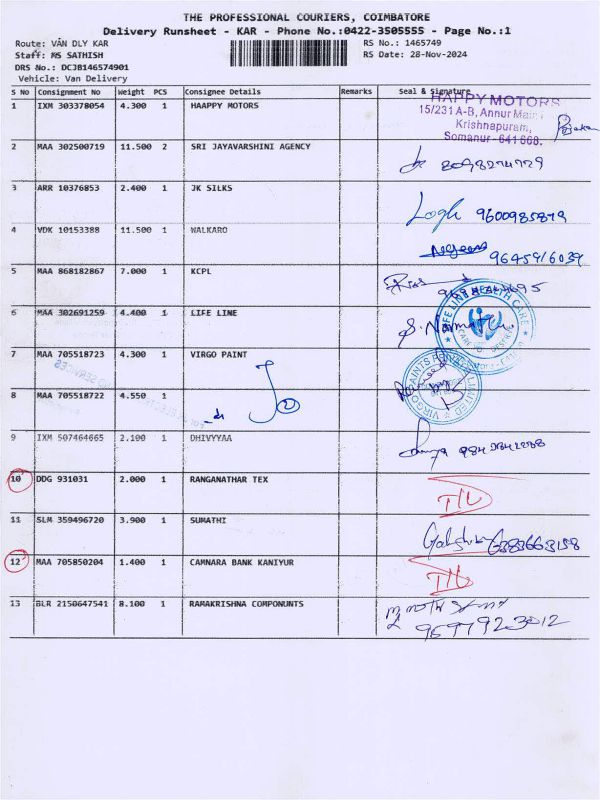 THE PROFESSIONAL COURIERS, COIMBATORE
Delivery Runsheet - KAR - Phone No.:0422-3505555 - Page No.:1
Route: VAN DLY KAR RS No.: 1465749
Staff: MS SATHISH RS Date: 28-Nov-2024
DRS No.: DCJB146574901
Vehicle: Van Delivery
S No Consignment No Weight PCS Consignee Details Remarks Seal & Signature
1 IXM 303378054 4.300 1 HAAPPY MOTORS
HAPPY MOTORS
15/231 A-B, Annur Main
Krishnapuram,
Somanur - 641 668.
2 MAA 302500719 11.500 2 SRI JAYAVARSHINI AGENCY
3 ARR 10376853 2.400 1 JK SILKS
9600985879
4 VDK 10153388 11.500 1 WALKARO
5 MAA 868182867 7.000 1 KCPL
6 MAA 302691259 4.400 1 LIFE LINE
LIFE LINE HEALTH CARE
7 MAA 705518723 4.300 1 VIRGO PAINT
8 MAA 705518722 4.550 1
9 IXM 507464665 2.100 1 DHIVYYAA
10 DDG 931031 2.000 1 RANGANATHAR TEX
11 SLM 359496720 3.900 1 SUMATHI
6383663158
12 MAA 705850204 1.400 1 CAMNARA BANK KANIYUR
13 BLR 2150647541 8.100 1 RAMAKRISHNA COMPONUNTS
9697923012